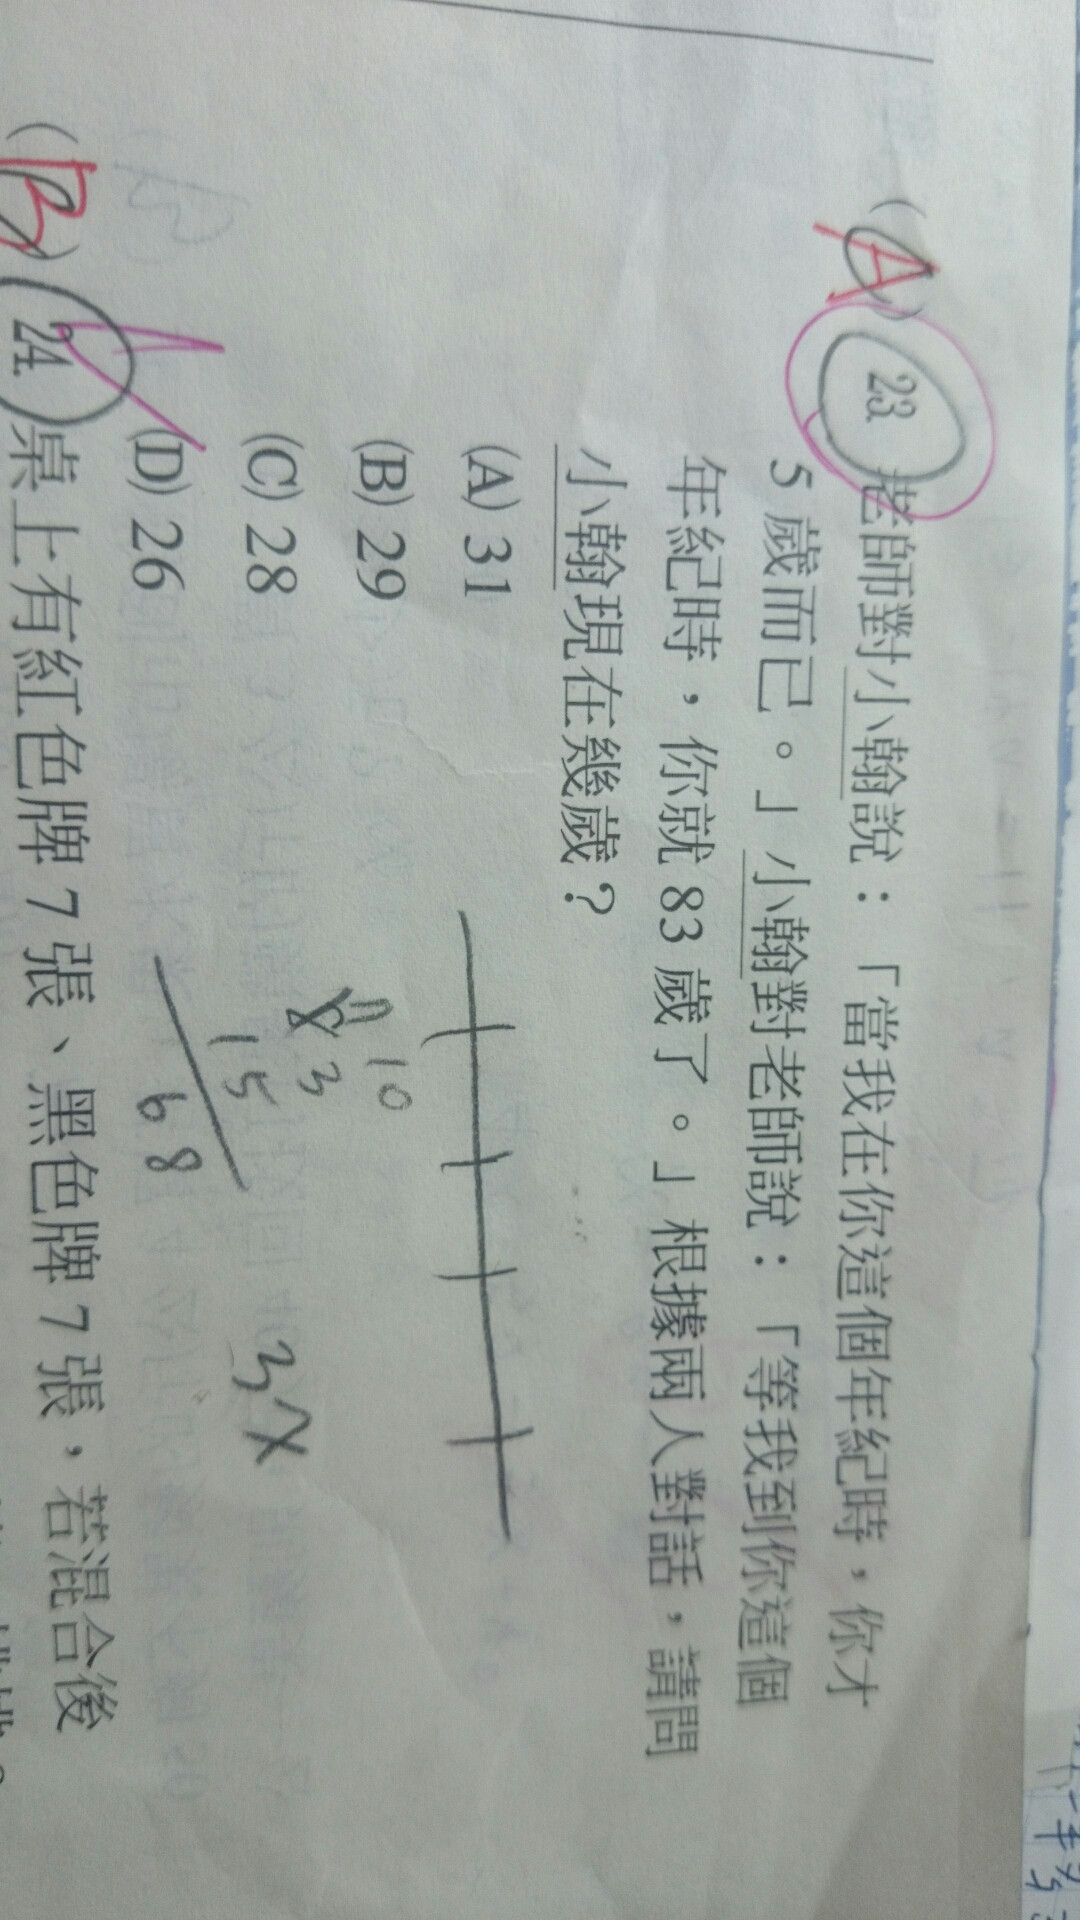 (A) 23 老師對小翰說：「當我在你這個年紀時，你才
5 歲而已。」小翰對老師說：「等我到你這個
年紀時，你就 83 歲了。」根據兩人對話，請問
小翰現在幾歲？
(A) 31
(B) 29
(C) 28
(D) 26
10
83
15
68
3X
(B) 24 桌上有紅色牌 7 張、黑色牌 7 張，若混合後